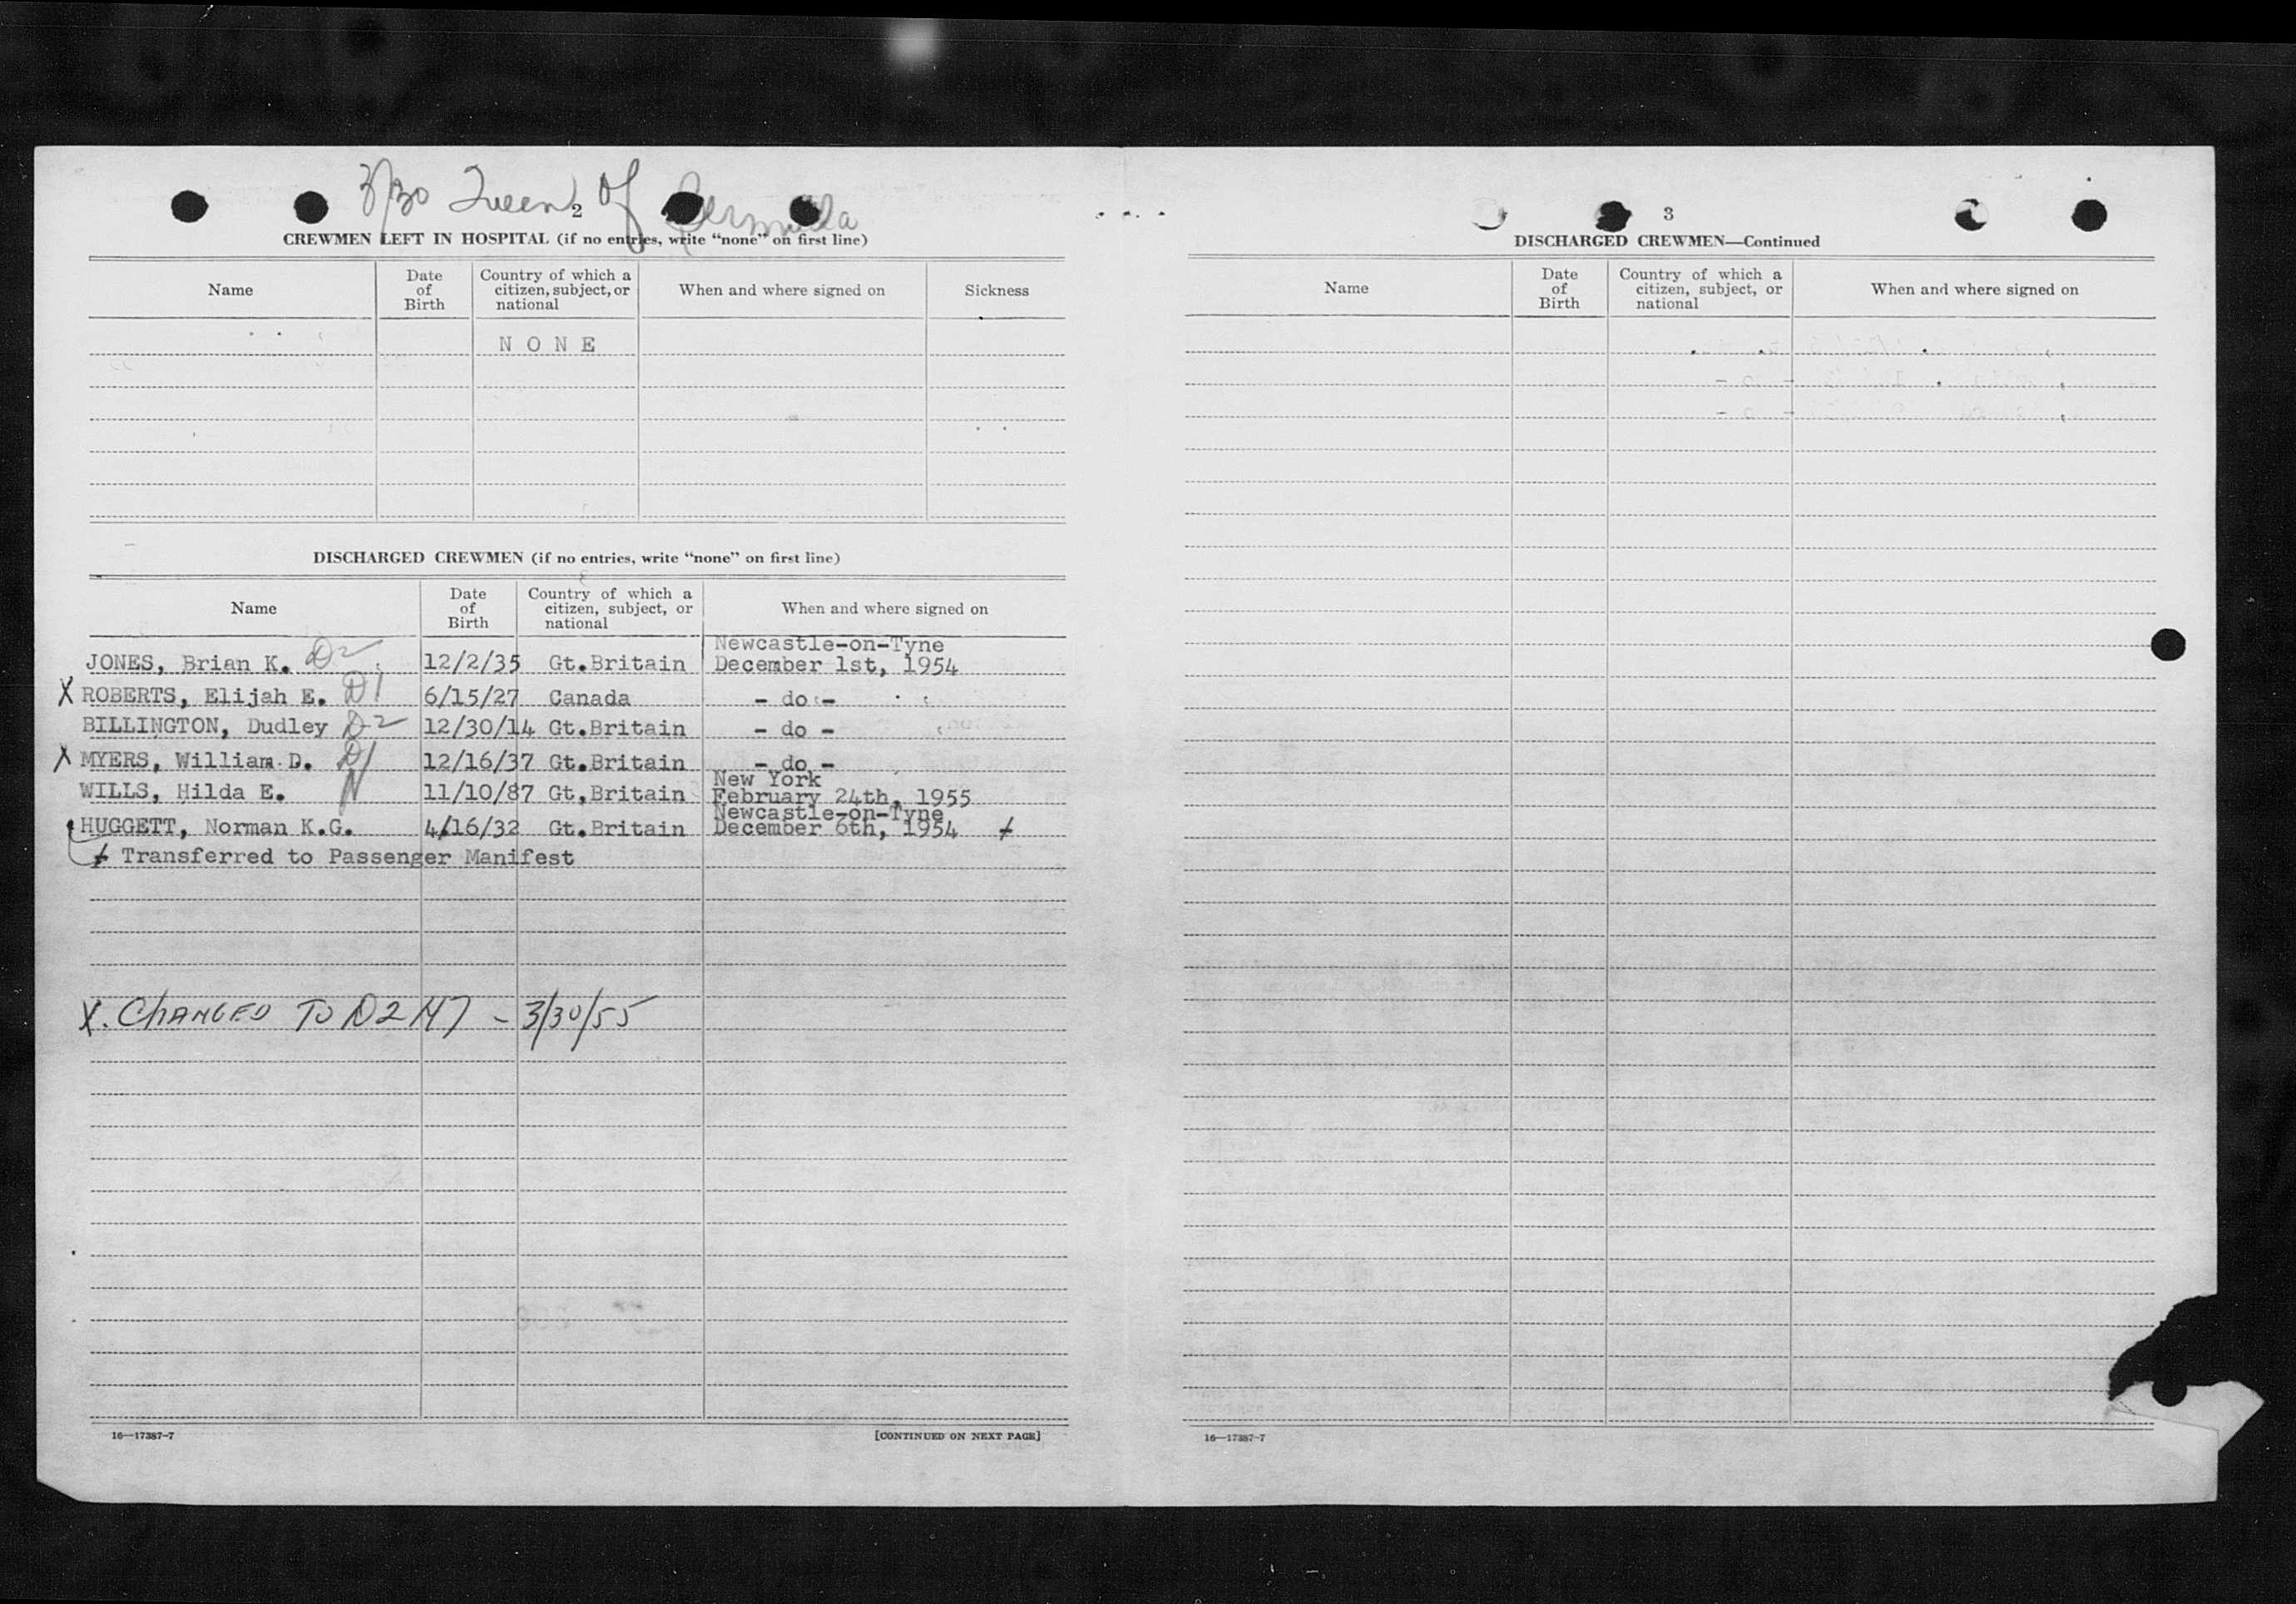 3/30 Queen of Bermuda
2
CREWMEN LEFT IN HOSPITAL (if no entries, write "none" on first line)
Name Date of Birth Country of which a citizen, subject, or national When and where signed on Sickness
N O N E
DISCHARGED CREWMEN (if no entries, write "none" on first line)
Name Date of Birth Country of which a citizen, subject, or national When and where signed on
Newcastle-on-Tyne
JONES, Brian K. D2 12/2/35 Gt.Britain December 1st, 1954
X ROBERTS, Elijah E. D1 6/15/27 Canada - do -
BILLINGTON, Dudley D-2 12/30/14 Gt.Britain - do -
X MYERS, William D. D1 12/16/37 Gt.Britain - do -
New York
WILLS, Hilda E. N 11/10/87 Gt,Britain February 24th, 1955
Newcastle-on-Tyne
HUGGETT, Norman K.G. 4/16/32 Gt.Britain December 6th, 1954 ≠
≠ Transferred to Passenger Manifest
X. CHANGED TO D2 - 3/30/55
16—17387-7 [CONTINUED ON NEXT PAGE]
3
DISCHARGED CREWMEN—Continued
Name Date of Birth Country of which a citizen, subject, or national When and where signed on
16—17387-7